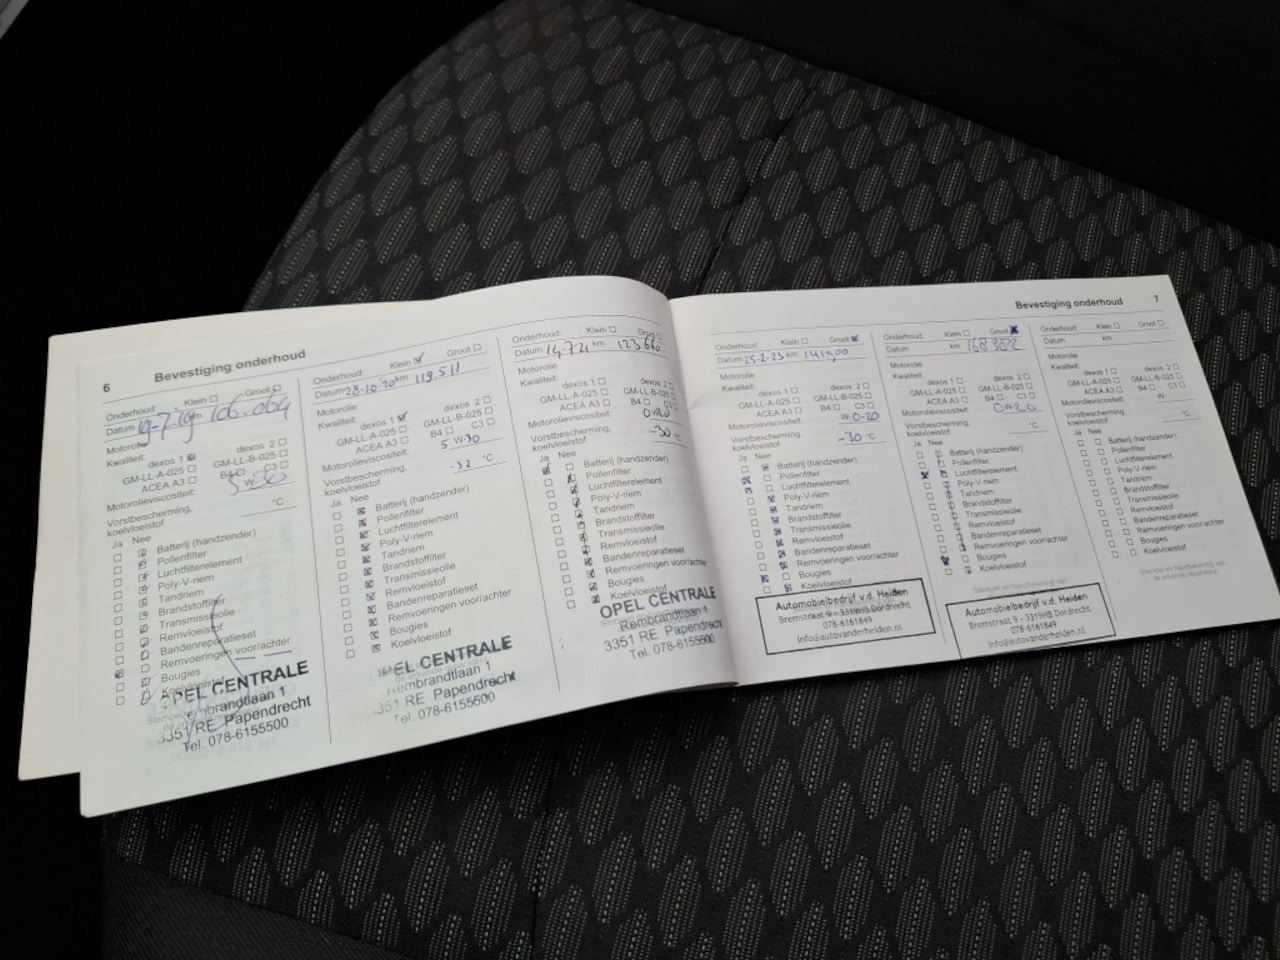 6 Bevestiging onderhoud
Onderhoud: Klein ☐ Groot ☐
Datum 19-7-19 km 106.064
Motorolie
Kwaliteit: dexos 1 ☒ dexos 2 ☐
GM-LL-A-025 ☐ GM-LL-B-025 ☐
ACEA A3 ☐ B4 ☐ C3 ☐
Motorolieviscositeit: 5 W-30
Vorstbescherming,
koelvloeistof °C
Ja Nee
Batterij (handzender)
Pollenfilter
Luchtfilterelement
Poly-V-riem
Tandriem
Brandstoffilter
Transmissieolie
Remvloeistof
Bandenreparatieset
Remvoeringen voor/achter
Bougies
Koelvloeistof
OPEL CENTRALE
Rembrandtlaan 1
3351 RE Papendrecht
Tel. 078-6155500
Onderhoud: Klein ☑ Groot ☐
Datum 28-10-20 km 119.511
Motorolie
Kwaliteit: dexos 1 ☑ dexos 2 ☐
GM-LL-A-025 ☐ GM-LL-B-025 ☐
ACEA A3 ☐ B4 ☐ C3 ☐
Motorolieviscositeit: 5 W-30
Vorstbescherming,
koelvloeistof -32 °C
Ja Nee
Batterij (handzender)
Pollenfilter
Luchtfilterelement
Poly-V-riem
Tandriem
Brandstoffilter
Transmissieolie
Remvloeistof
Bandenreparatieset
Remvoeringen voor/achter
Bougies
Koelvloeistof
OPEL CENTRALE
Rembrandtlaan 1
3351 RE Papendrecht
Tel. 078-6155500
Onderhoud: Klein ☐ Groot ☐
Datum 14-7-21 km 123.660
Motorolie
Kwaliteit: dexos 1 ☐ dexos 2 ☐
GM-LL-A-025 ☐ GM-LL-B-025 ☐
ACEA A3 ☐ B4 ☐ C3 ☐
Motorolieviscositeit: 0W20
Vorstbescherming,
koelvloeistof -30 °C
Ja Nee
Batterij (handzender)
Pollenfilter
Luchtfilterelement
Poly-V-riem
Tandriem
Brandstoffilter
Transmissieolie
Remvloeistof
Bandenreparatieset
Remvoeringen voor/achter
Bougies
Koelvloeistof
OPEL CENTRALE
Rembrandtlaan 1
3351 RE Papendrecht
Tel. 078-6155500
Bevestiging onderhoud 7
Onderhoud: Klein ☐ Groot ☑
Datum 25-2-23 km 141500
Motorolie
Kwaliteit:
dexos 1 ☐ dexos 2 ☐
GM-LL-A-025 ☐ GM-LL-B-025 ☐
ACEA A3 ☐ B4 ☐ C3 ☐
Motorolieviscositeit: W-0-20
Vorstbescherming,
koelvloeistof -30 °C
Ja Nee
Batterij (handzender)
Pollenfilter
Luchtfilterelement
Poly-V-riem
Tandriem
Brandstoffilter
Transmissieolie
Remvloeistof
Bandenreparatieset
Remvoeringen voor/achter
Bougies
Koelvloeistof
Automobielbedrijf v.d. Heiden
Bremstraat 9 - 3319HB Dordrecht
078-6161849
info@autovanderheiden.nl
Onderhoud: Klein ☐ Groot ☒
Datum km 168302
Motorolie
Kwaliteit:
dexos 1 ☐ dexos 2 ☐
GM-LL-A-025 ☐ GM-LL-B-025 ☐
ACEA A3 ☐ B4 ☐ C3 ☐
Motorolieviscositeit: 0W-20
Vorstbescherming,
koelvloeistof °C
Ja Nee
Batterij (handzender)
Pollenfilter
Luchtfilterelement
Poly-V-riem
Tandriem
Brandstoffilter
Transmissieolie
Remvloeistof
Bandenreparatieset
Remvoeringen voor/achter
Bougies
Koelvloeistof
Stempel en handtekening van
Automobielbedrijf v.d. Heiden
Bremstraat 9 - 3319HB Dordrecht
078-6161849
info@autovanderheiden.nl
Onderhoud: Klein ☐ Groot ☐
Datum km
Motorolie
Kwaliteit:
dexos 1 ☐ dexos 2 ☐
GM-LL-A-025 ☐ GM-LL-B-025 ☐
ACEA A3 ☐ B4 ☐ C3 ☐
Motorolieviscositeit: W-
Vorstbescherming,
koelvloeistof °C
Ja Nee
Batterij (handzender)
Pollenfilter
Luchtfilterelement
Poly-V-riem
Tandriem
Brandstoffilter
Transmissieolie
Remvloeistof
Bandenreparatieset
Remvoeringen voor/achter
Bougies
Koelvloeistof
Stempel en handtekening van
de erkende reparateur